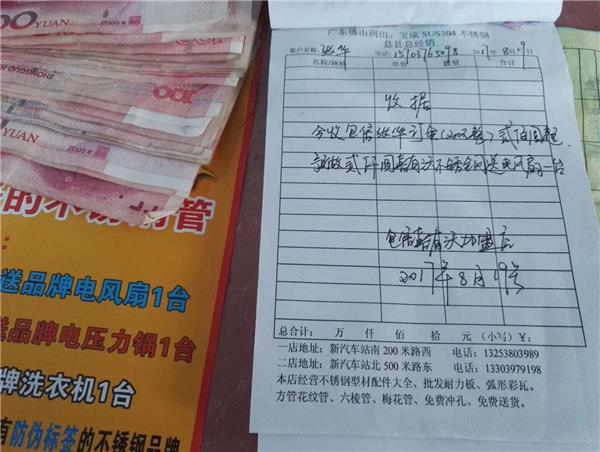 00
YUAN
2005年
100
YUAN
2005年
的不锈钢管
：
送品牌电风扇1台
送品牌电压力锅1台
牌洗衣机1台
有防伪标签的不锈钢品牌
广东佛山润田、宝成 SUS304 不锈钢
息县总经销
客户名称: 张华 电话: 2017年8月19日
名称/规格 单价 数量 合计
收据
今收包信张华订金(200元整)贰佰圆整
包信喜有沃加盟店
2017年8月19号
总合计： 万 仟 佰 拾 元 （小写）¥:
一店地址：新汽车站南 200 米路西 电话：13253803989
二店地址：新汽车站北 500 米路东 电话：13303979198
本店经营不锈钢型材配件大全、批发耐力板、弧形彩瓦。
方管花纹管、六棱管、梅花管、免费冲孔、免费送货。